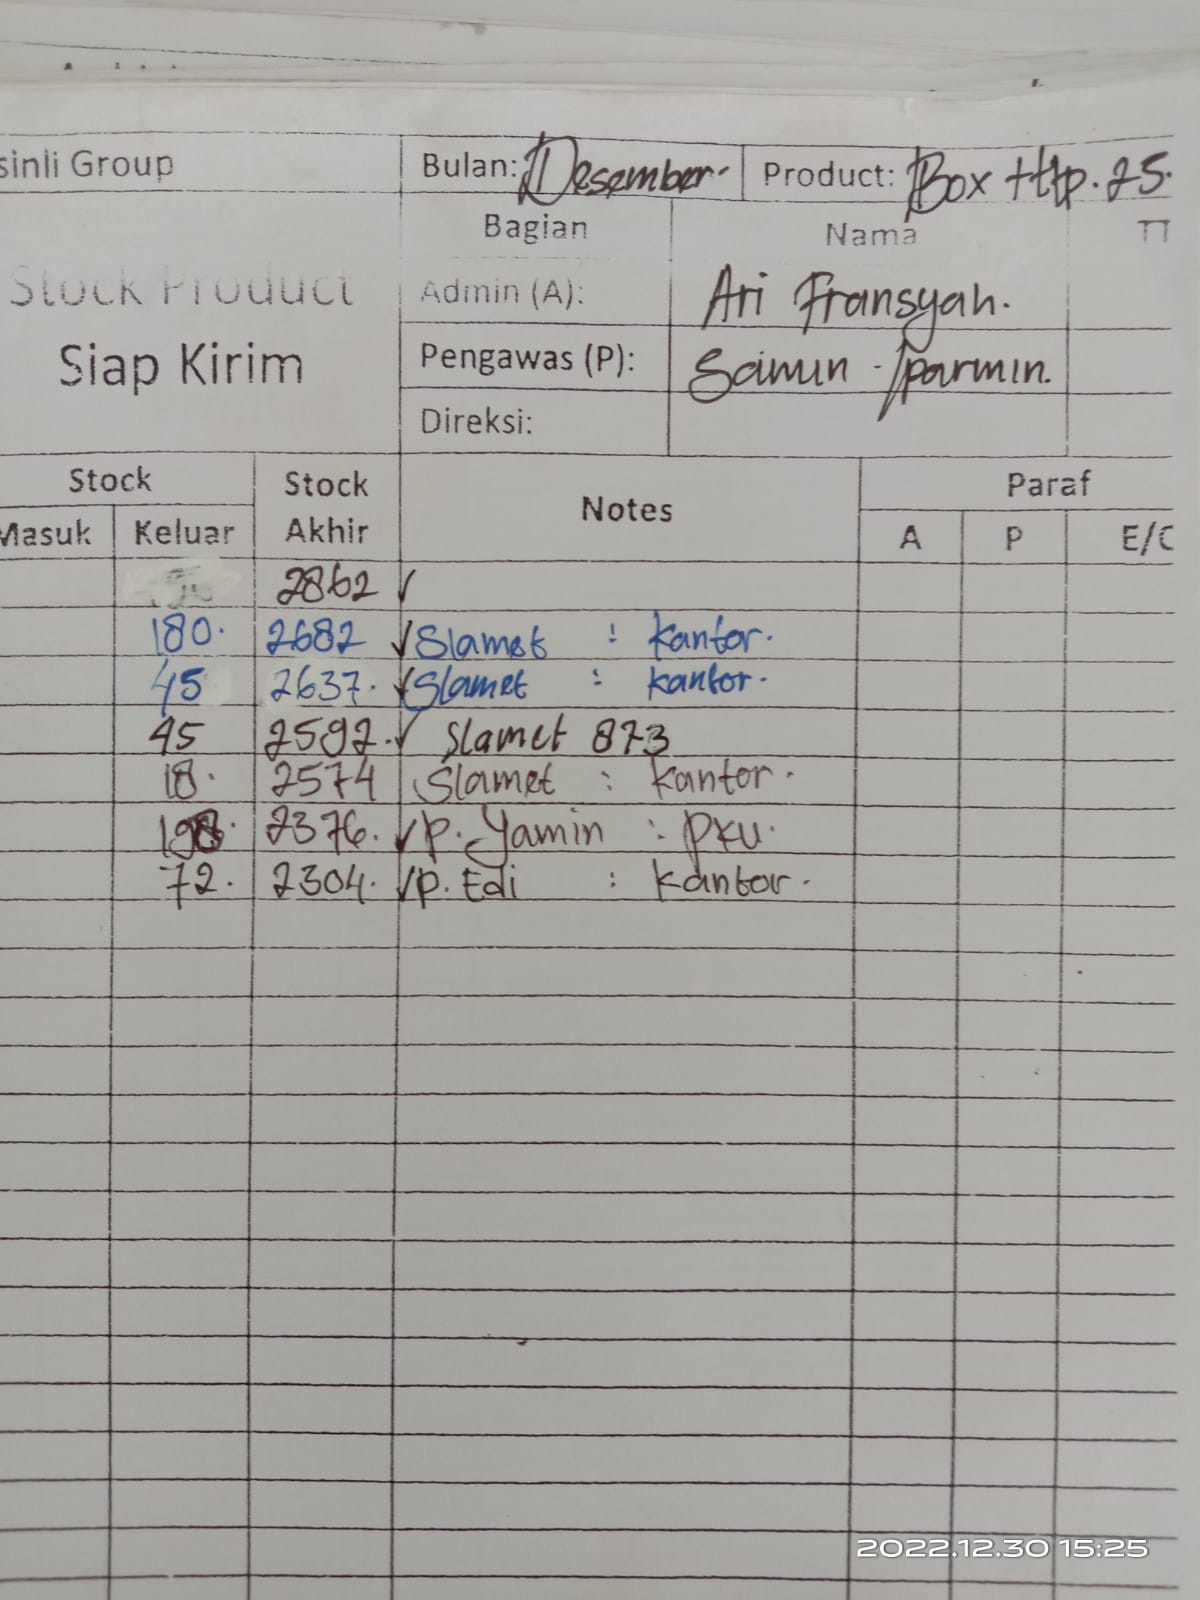 sinli Group Bulan: Desember. Product: Box Htp. 25.
Bagian Nama TT
Stock Product Admin (A): Ari Fransyah.
Siap Kirim Pengawas (P): Samin - /parmin.
Direksi:
Stock Stock Akhir Notes Paraf
Masuk Keluar A P E/C
2862 ✓
180. 2682 ✓ Slamet : kantor.
45 2637. ✓ Slamet : kantor.
45 2592. ✓ Slamet 873
18. 2574 Slamet : kantor.
198. 2376. ✓ P. Yamin : PKU.
72. 2304. ✓ P. Edi : kantor.
2022.12.30 15:25